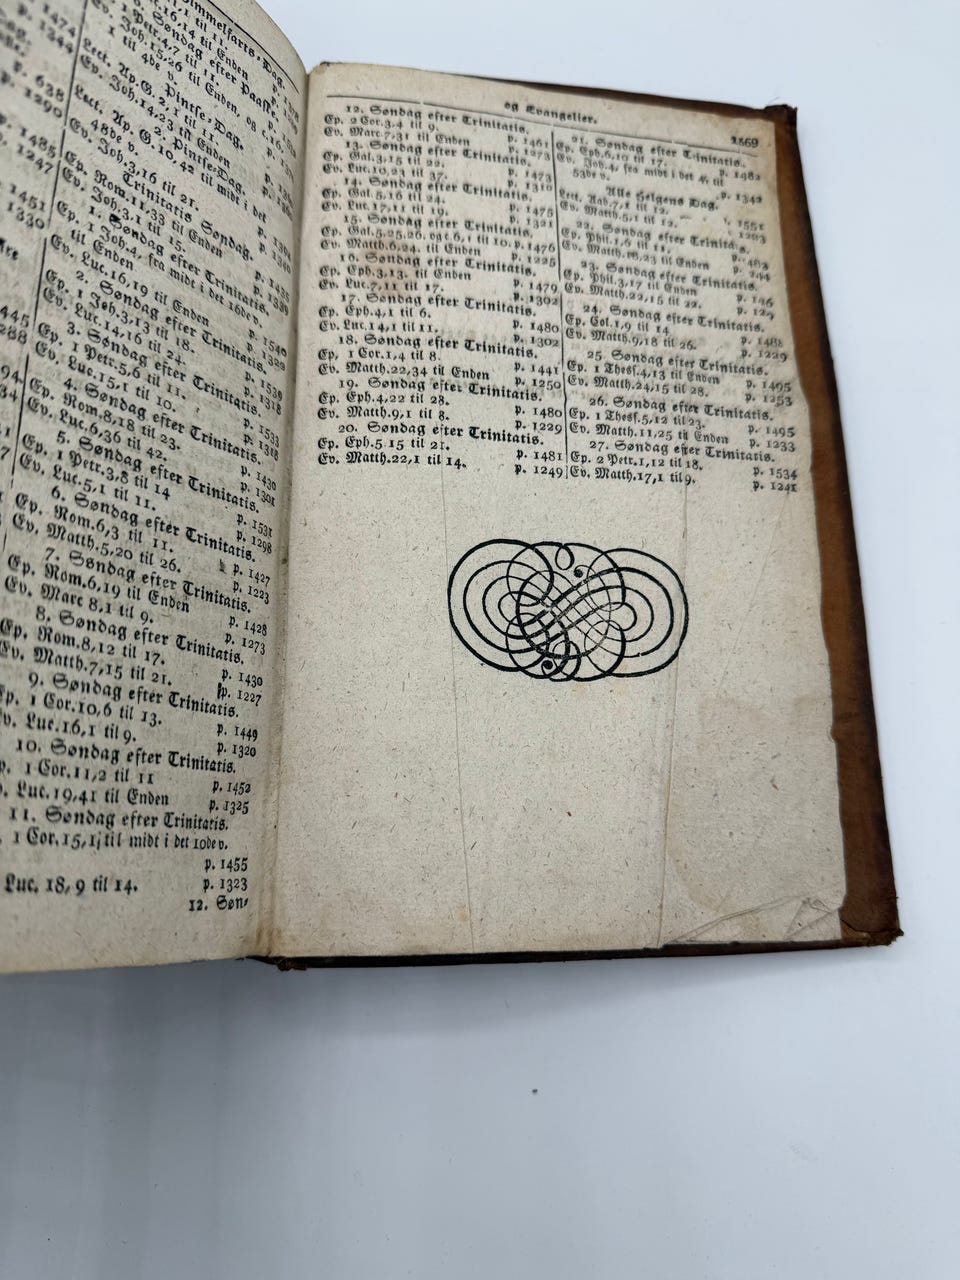 Himmelfarts-Dag.
1,1 til 11.
16,14 til Enden
Søndag efter Paaske.
1 Petr.4,7 til 11.
Ev. Joh.15,26 til Enden, og c.16,
1 til 4de v.
Pintse-Dag.
Lect. Ap.G.2,1 til 11.
Ev. Joh.14,23 til Enden
2. Pintse-Dag.
Lect. Ap. G.10,42 til midt i det
48de v.
Ev. Joh.3,16 til 21.
Trinitatis Søndag.
Ep. Rom.11,33 til Enden
Ev. Joh.3,1 til 15.
1. Søndag efter Trinitatis.
Ep. 1 Joh.4, fra midt i det 16de v.
til Enden
Ev. Luc.16,19 til Enden p. 1540
2. Søndag efter Trinitatis.
Ep. 1 Joh.3,13 til 18.
Ev. Luc.14,16 til 24.
3. Søndag efter Trinitatis.
Ep. 1 Petr.5,6 til 11. p. 1533
Ev. Luc.15,1 til 10. p. 1318
4. Søndag efter Trinitatis.
Ep. Rom.8,18 til 23. p. 1430
Ev. Luc.6,36 til 42. p. 1301
5. Søndag efter Trinitatis.
Ep. 1 Petr.3,8 til 14 p. 1531
Ev. Luc.5,1 til 11. p. 1298
6. Søndag efter Trinitatis.
Ep. Rom.6,3 til 11. p. 1427
Ev. Matth.5,20 til 26. p. 1223
7. Søndag efter Trinitatis.
Ep. Rom.6,19 til Enden p. 1428
Ev. Marc 8,1 til 9. p. 1273
8. Søndag efter Trinitatis.
Ep. Rom.8,12 til 17. p. 1430
Ev. Matth.7,15 til 21. p. 1227
9. Søndag efter Trinitatis.
Ep. 1 Cor.10,6 til 13. p. 1449
Ev. Luc.16,1 til 9. p. 1320
10. Søndag efter Trinitatis.
1 Cor.11,2 til 11 p. 1452
Luc. 19,41 til Enden p. 1325
11. Søndag efter Trinitatis.
1 Cor.15,1, til midt i det 10de v.
p. 1455
Luc. 18,9 til 14. p. 1323
12. Søn-
og Evangelier. 1869
12. Søndag efter Trinitatis.
Ep. 2 Cor.3,4 til 9. p. 1461
Ev. Marc.7,31 til Enden p. 1273
13. Søndag efter Trinitatis.
Ep. Gal.3,15 til 22. p. 1473
Ev. Luc.10,23 til 37. p. 1310
14. Søndag efter Trinitatis.
Ep. Gal.5,16 til 24. p. 1475
Ev. Luc.17,11 til 19. p. 1321
15. Søndag efter Trinitatis.
Ep. Gal.5,25.26. og c.6,1 til 10. p. 1476
Ev. Matth.6,24. til Enden p. 1225
16. Søndag efter Trinitatis.
Ep. Eph.3,13. til Enden p. 1479
Ev. Luc.7,11 til 17. p. 1302
17. Søndag efter Trinitatis.
Ep. Eph.4,1 til 6. p. 1480
Ev. Luc.14,1 til 11. p. 1302
18. Søndag efter Trinitatis.
Ep. 1 Cor.1,4 til 8. p. 1441
Ev. Matth.22,34 til Enden p. 1250
19. Søndag efter Trinitatis.
Ep. Eph.4,22 til 28. p. 1480
Ev. Matth.9,1 til 8. p. 1229
20. Søndag efter Trinitatis.
Ep. Eph.5 15 til 21. p. 1481
Ev. Matth.22,1 til 14. p. 1249
21. Søndag efter Trinitatis.
Ep. Eph.6,10 til 17. p. 1482
Ev. Joh.4, fra midt i det 46 til
53de v. p. 1342
Alle Helgens Dag.
Lect. Aab.7,1 til 12. p. 1551
Ev. Matth.5,1 til 12.
22. Søndag efter Trinitatis.
Ep. Phil.1,6 til 11.
Ev. Matth.18,23 til Enden
23. Søndag efter Trinitatis.
Ep. Phil.3,17 til Enden
Ev. Matth.22,15 til 22.
24. Søndag efter Trinitatis.
Ep. Col.1,9 til 14 p. 1488
Ev. Matth.9,18 til 26. p. 1229
25. Søndag efter Trinitatis.
Ep. 1 Thess.4,13 til Enden p. 1495
Ev. Matth.24,15 til 28. p. 1253
26. Søndag efter Trinitatis.
Ep. 1 Thess.5,12 til 23. p. 1495
Ev. Matth.11,25 til Enden p. 1233
27. Søndag efter Trinitatis.
Ep. 2 Petr.1,12 til 18. p. 1534
Ev. Matth.17,1 til 9. p. 1241